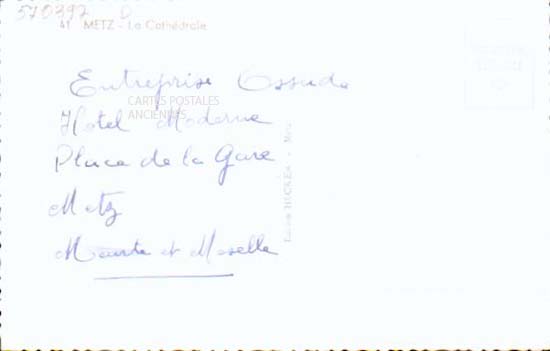 570392
41 METZ - La Cathédrale
Entreprise
CARTES POSTALES
ANCIENNES
Hotel Moderne
Place de la Gare
Metz
Meurthe et Moselle